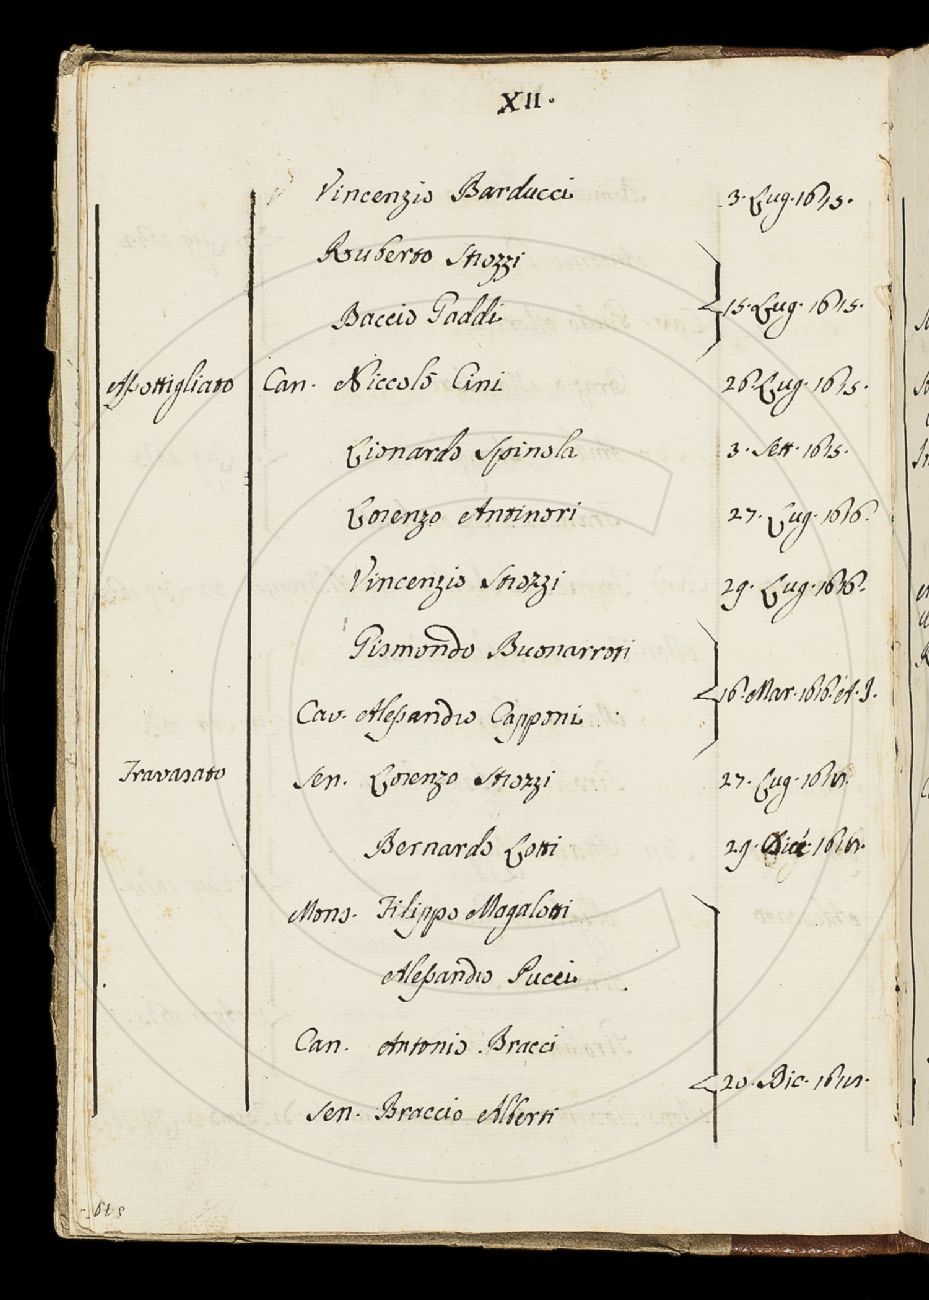 XII.
Vincenzio Barducci 3. Lug. 1645.
Ruberto Strozzi
Baccio Gaddi 15. Lug. 1645.
Assottigliato Can. Niccolò Cini 26 Lug. 1645.
Lionardo Spinola 3. Sett. 1645.
Lorenzo Antinori 27. Lug. 1646.
Vincenzio Strozzi 29. Lug. 1646.
Gismondo Buonarroti
16. Mar. 1646. A. I.
Cav. Alessandro Capponi
Travasato Sen. Lorenzo Strozzi 27. Lug.
Bernardo Lotti 29.
Mons. Filippo Magalotti
Alessandro Pucci
Can. Antonio Bracci
20. Dic.
Sen. Braccio Alberti